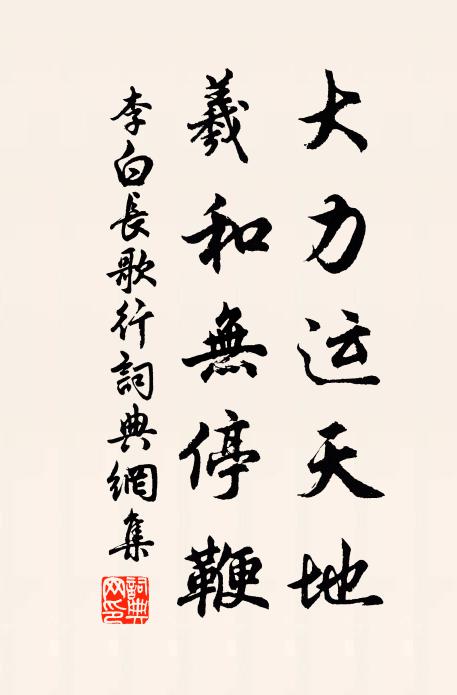 大力运天地
羲和無停鞭
李白長歌行詞典網集
詞典网印